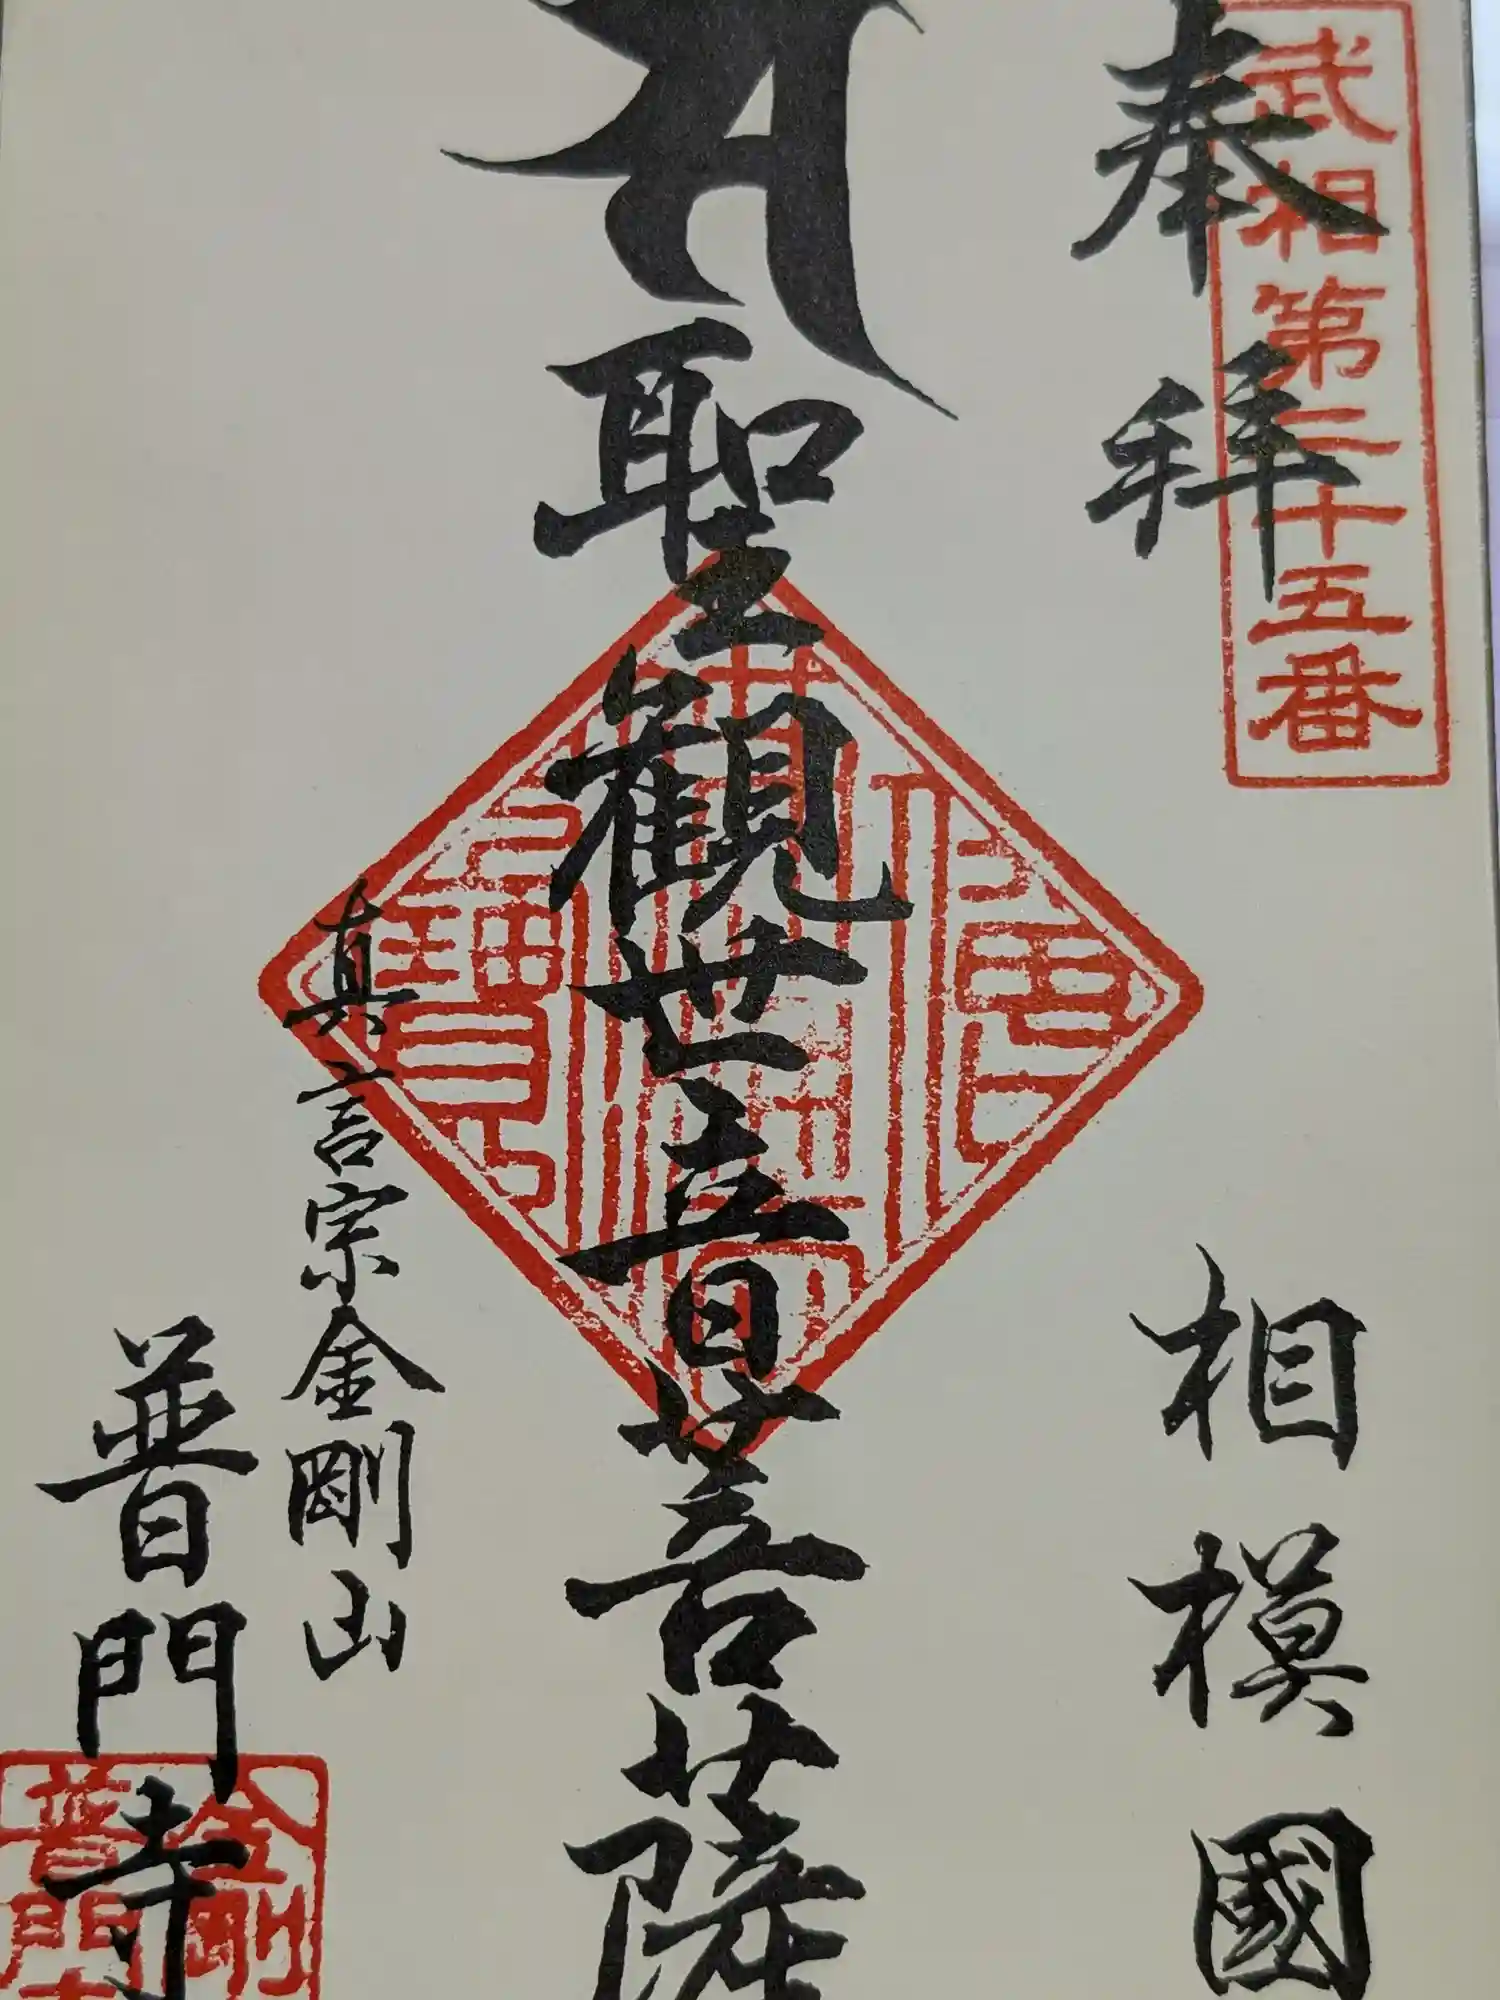 武相第二十五番
奉拜
相模國
聖観世音菩薩
真言宗金剛山
普門寺
金剛
普門